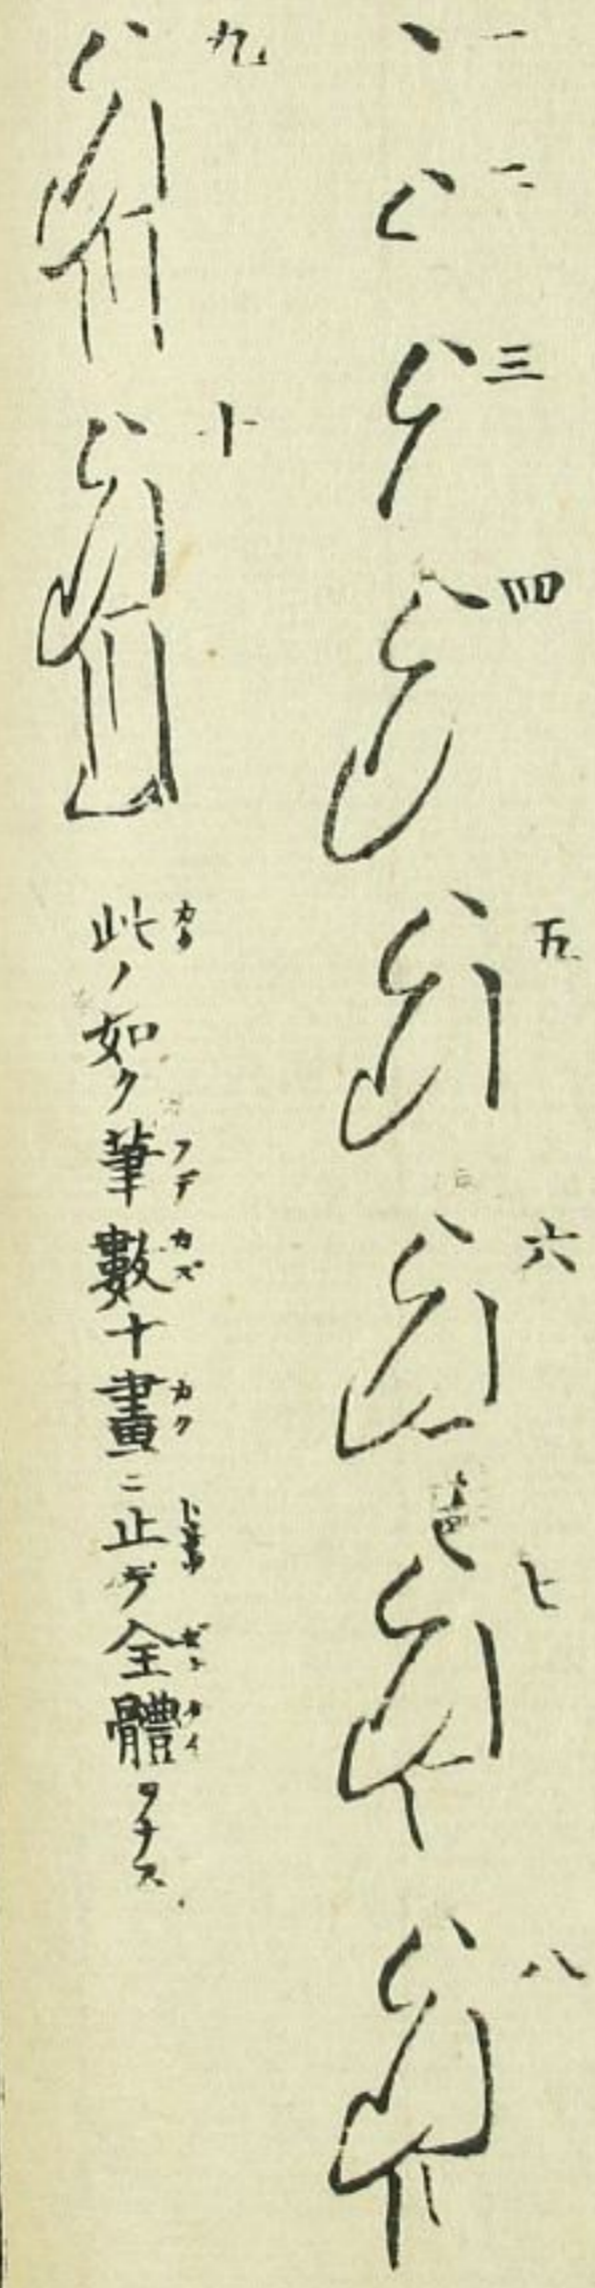 一
二
三
四
五
六
七
八
九
十
此ノ如ク筆數十畫ニ止テ全體ヲナス